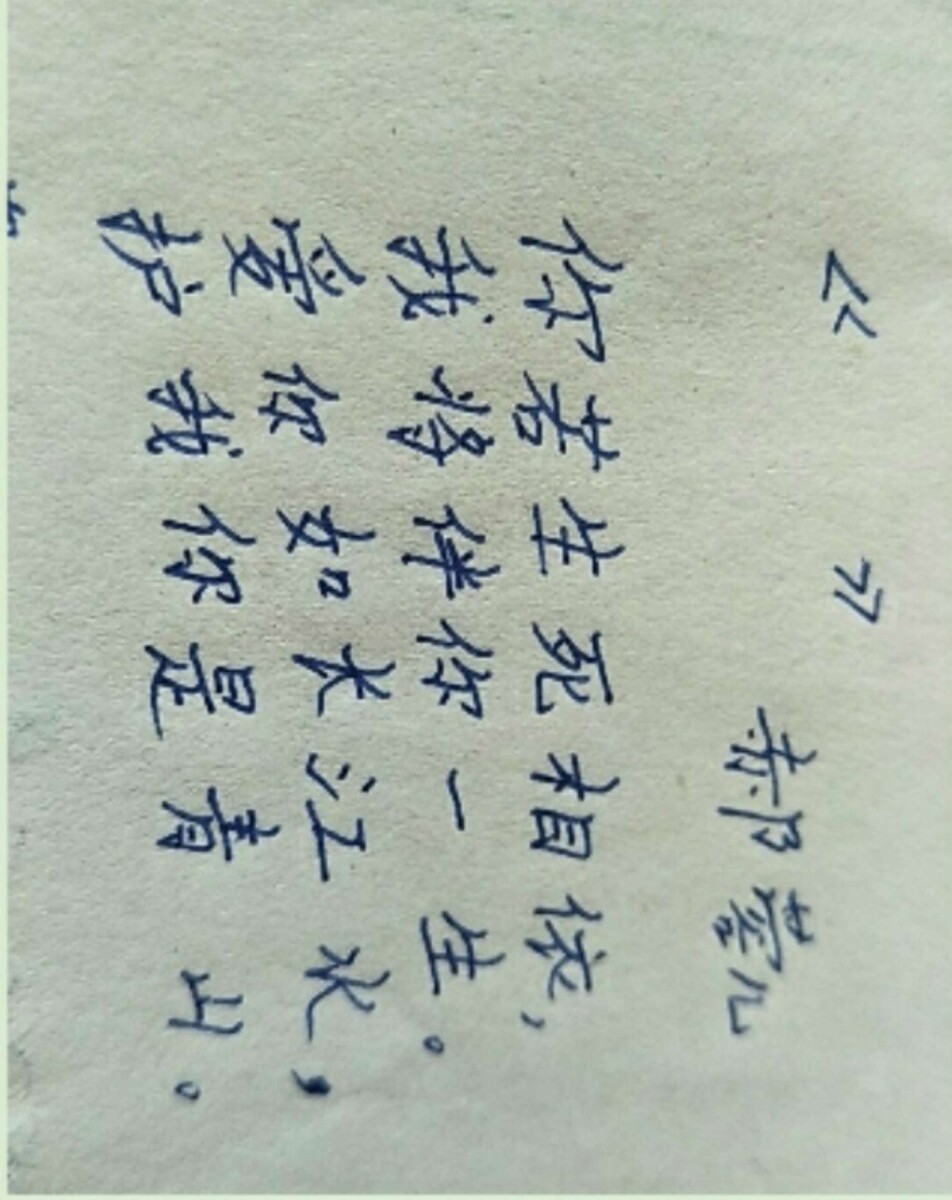 《 》
郝莹
你若生死相依，
我将伴你一生。
爱你如长江水，
护我你是青山。